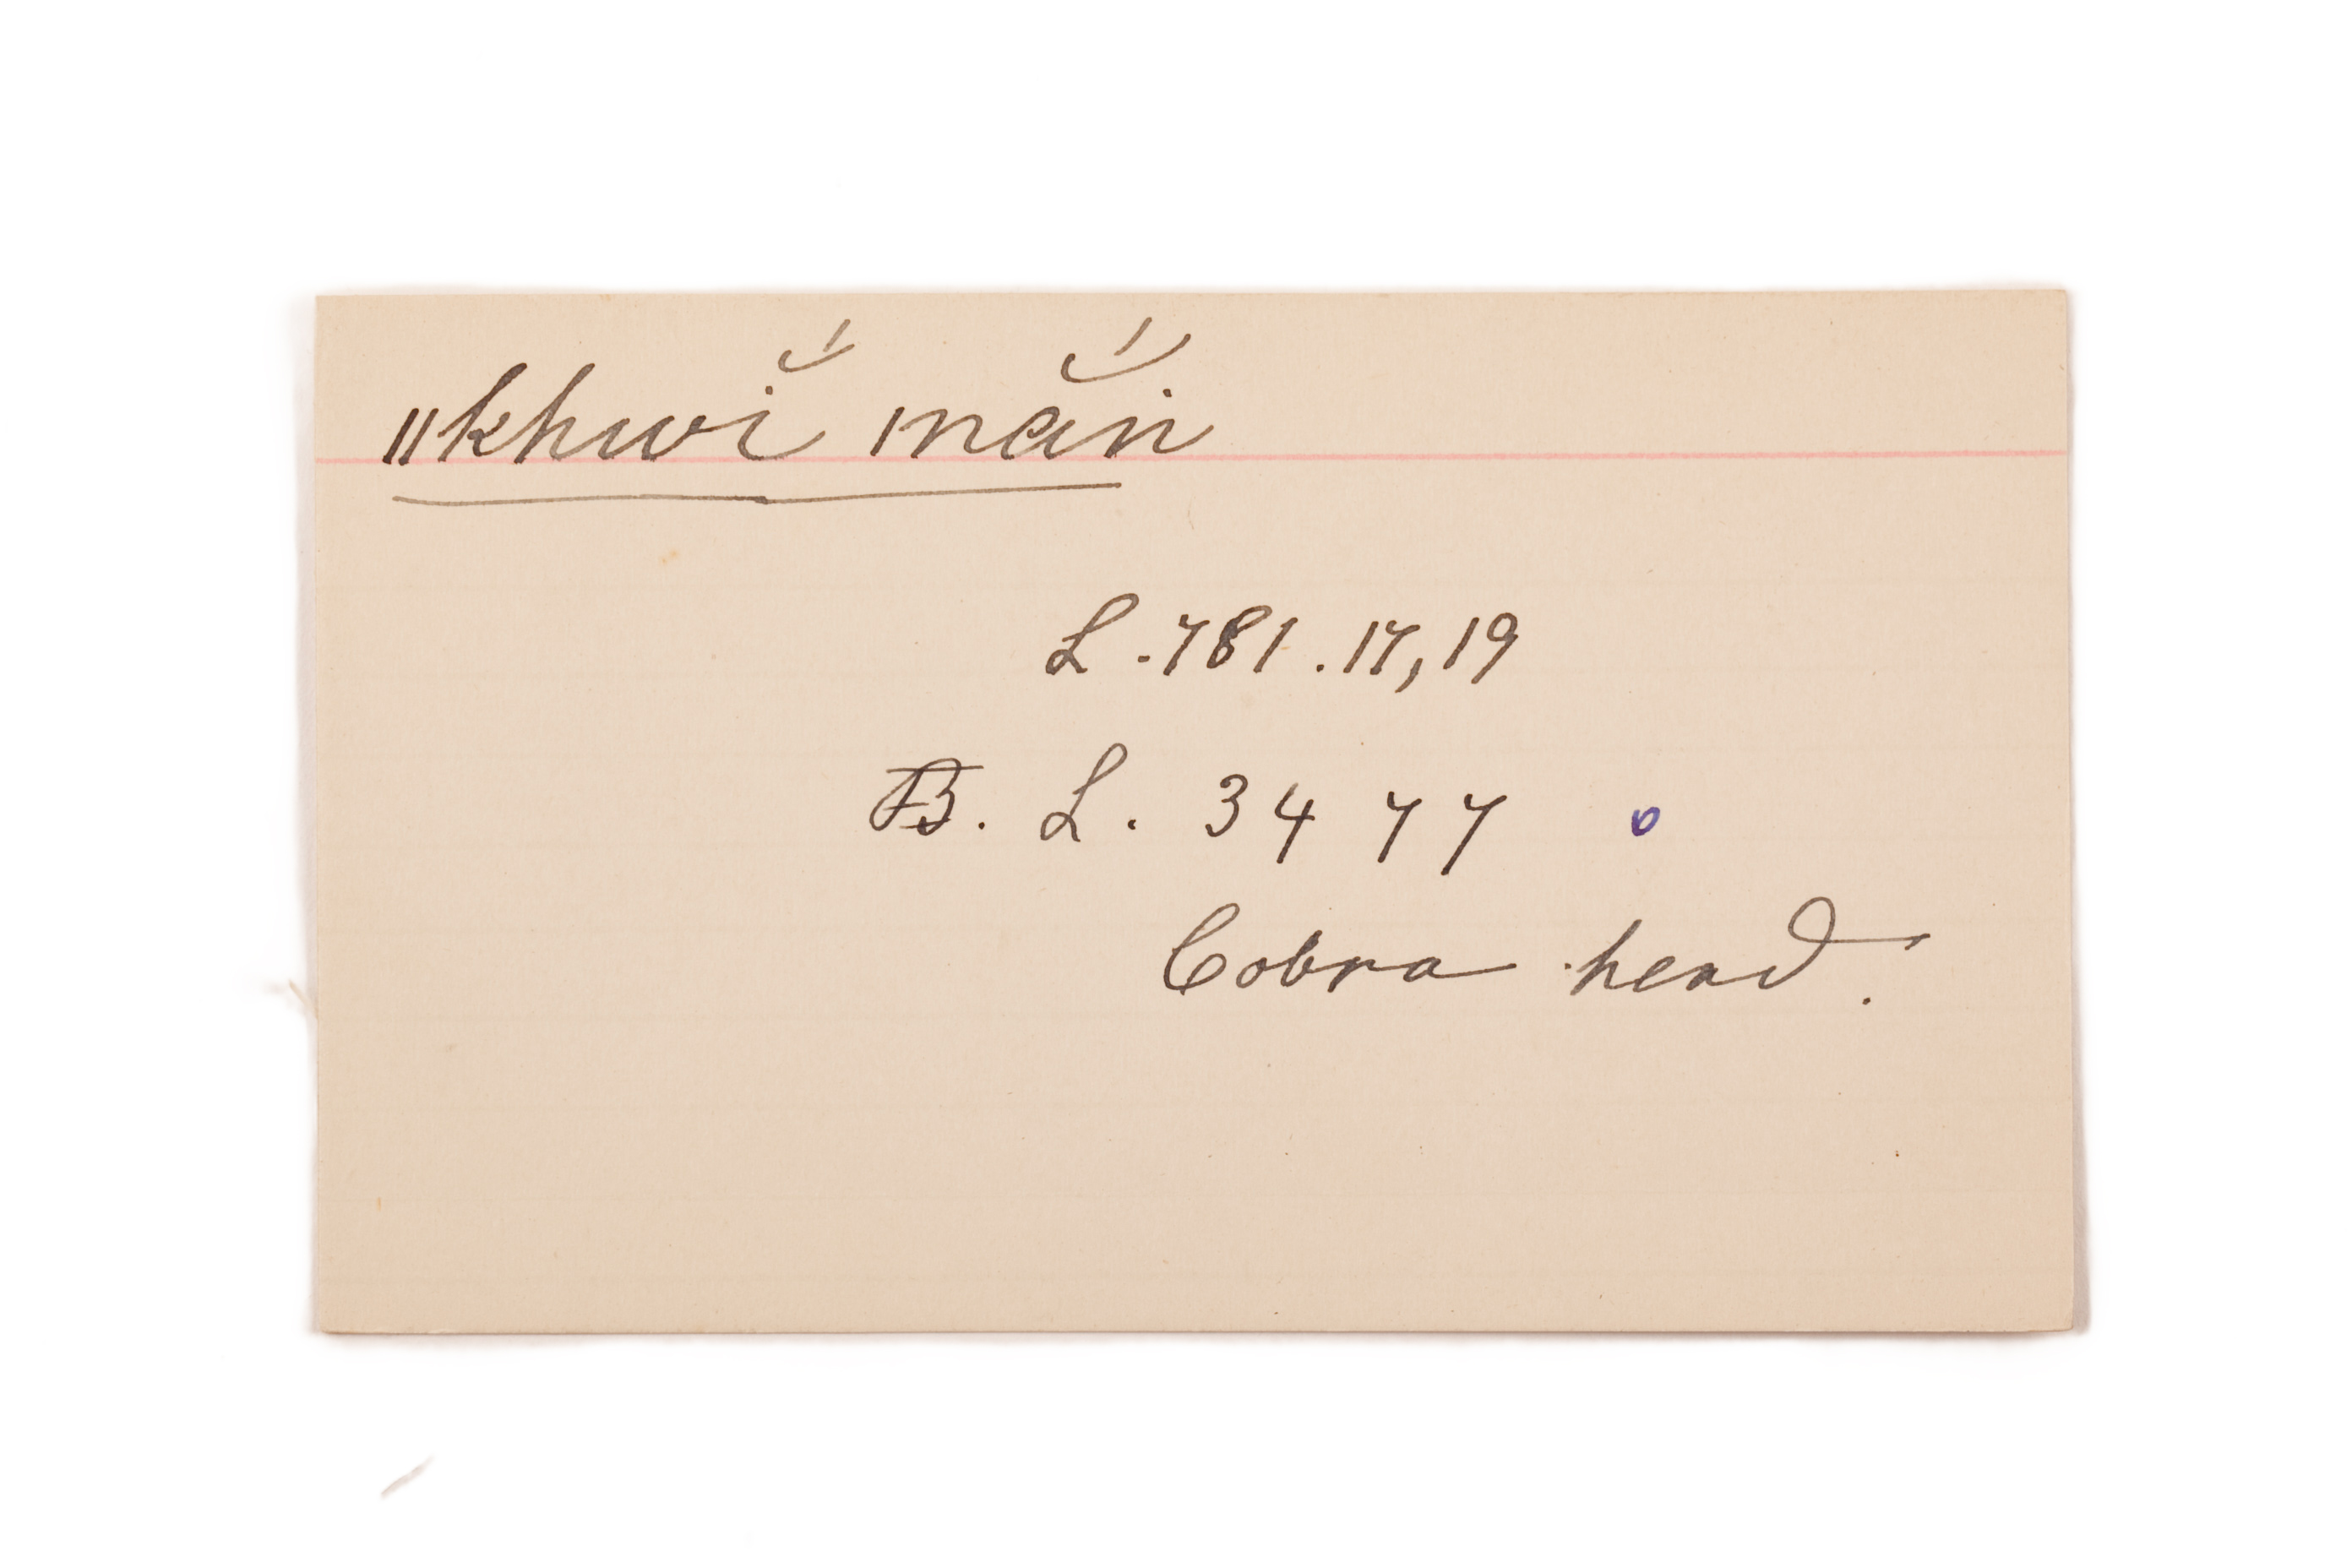 ǁkhwĭ́ ǀnắn
L. 781. 17, 19
B. L. 3477 o
Cobra head.